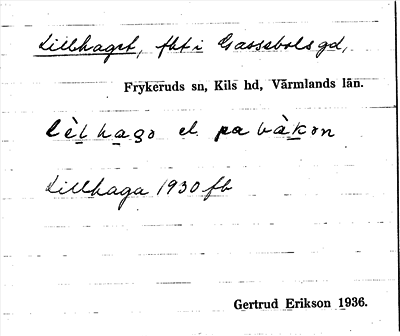 Lillhaget, fbt i Gassebols gd,
Frykeruds sn, Kils hd, Värmlands län.
lèl haga el. pa bàkon
Lillhaga 1930 fb
Gertrud Erikson 1936.